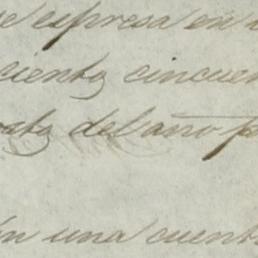 se espresa en
ciento cincuen
del año p
en una cuenta